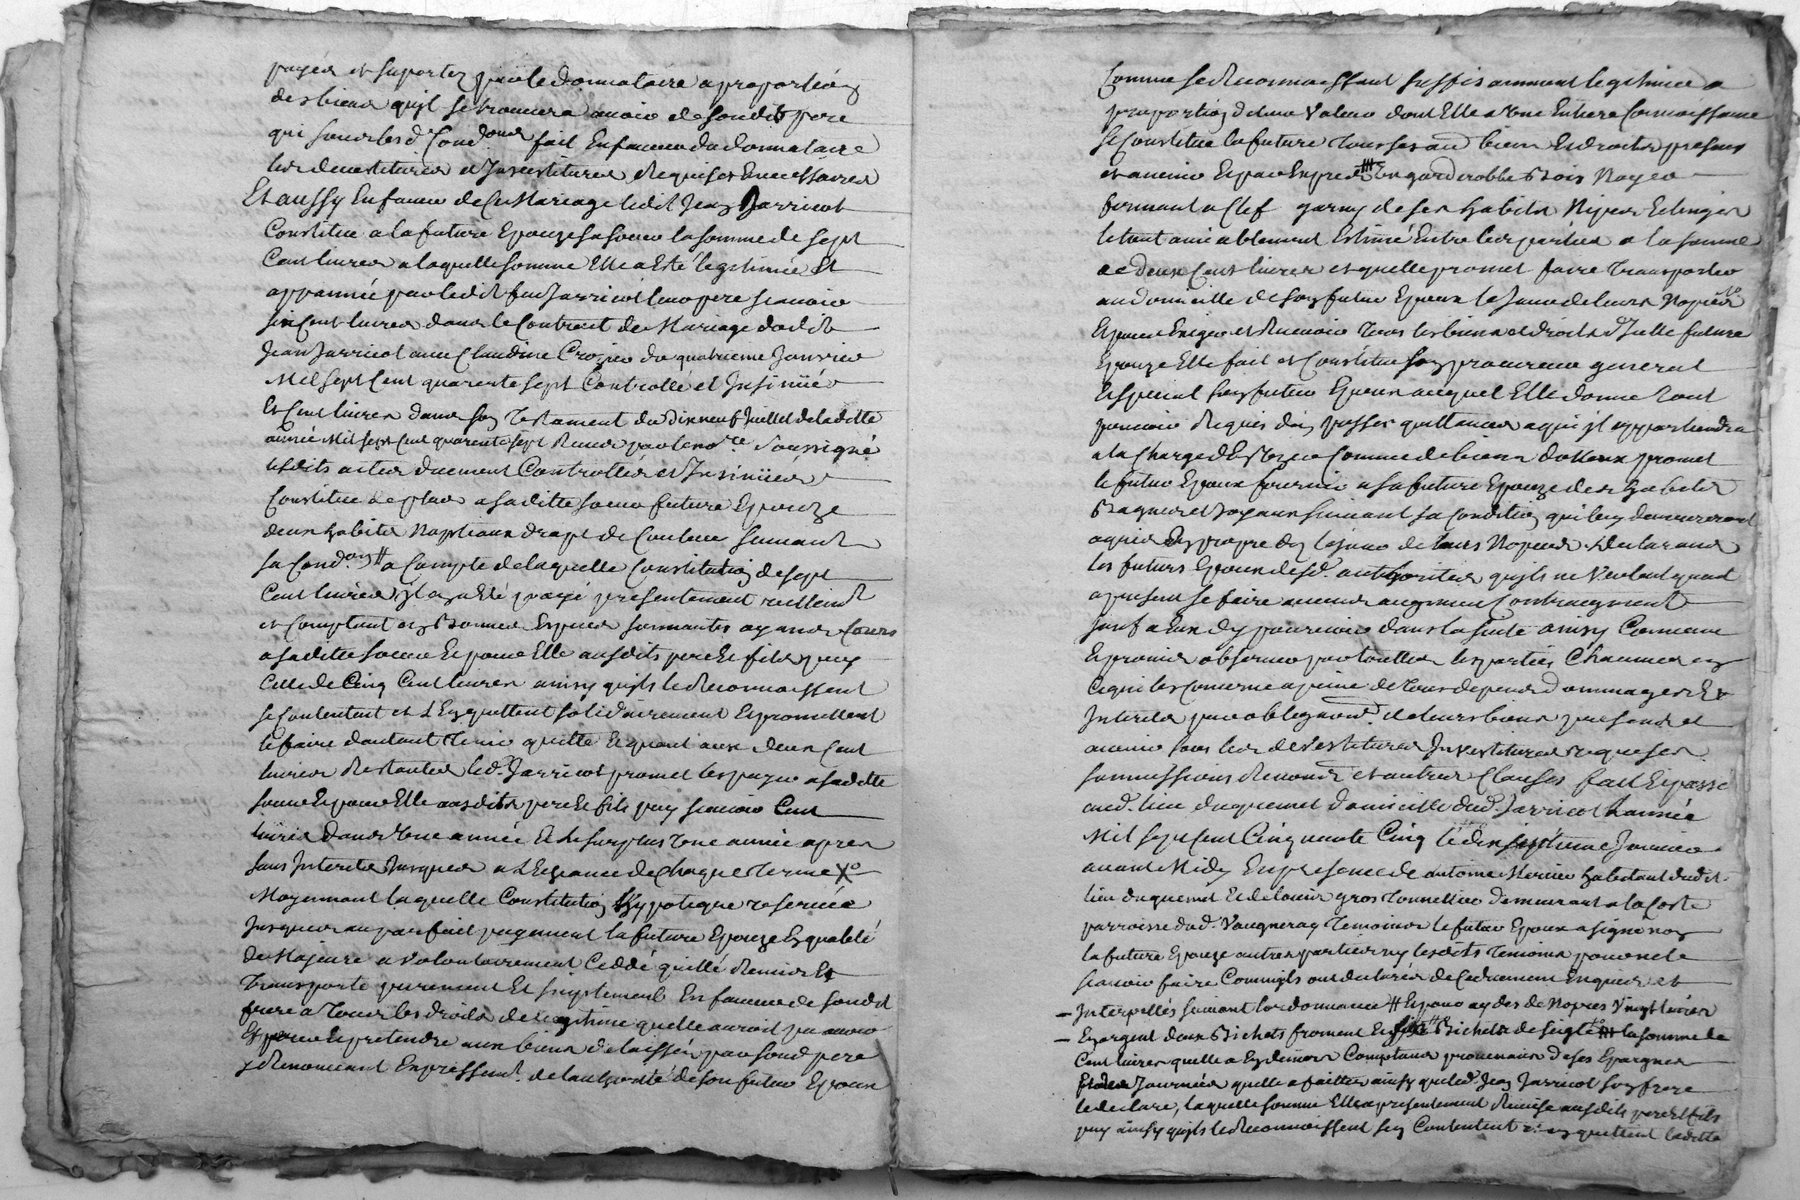 payer et suporter par le donnataire a proportion
des biens qu'il se trouvera avoir de sondit pere
qui sous lesd. Cond.ons fait En faveur du donnataire
les devestitures et Investitures Requises Et necessaires
Et aussy En faveur de Ce Mariage ledit Jean Jarricot
Constitue a la future Epouze sa soeur la somme de sept
Cent livres a laquelle somme Elle a Esté legitimée Et
appannée par ledit feu Jarricot leur pere scavoir
six Cent livres dans le Contract de Mariage dudit
Jean Jarricot avec Claudine Crozier du quatrieme Janvier
Mil sept Cent quarente sept Controllé et Insinüé
Et Cent livres dans son Testament du Dix neuf Juillet de laditte
année Mil sept Cent quarente sept Receu par le no.re soussigné
lesdits actes duement Controllés et Insinüés
Constitue de plus a saditte soeur future Epouze
deux habits Nuptiaux drapt de Couleur suivant
sa Cond.on # a Compte de laquelle Constitution de sept
Cent livres il a Esté payé presentement reellement
et Comptant en Bonnes Especes sonnantes ayant Cours
a saditte soeur Et pour Elle ausdits pere Et fils puy
Celle de Cinq Cent livres ainsy qu'ils le Reconnoissent
se Contentent et L'En quittent solidairement Et promettent
le faire dautant Tenir quitte Et quant aux deux Cent
livres Restantes led. Jarricot promet les payer a saditte
soeur Et pour Elle ausdits pere Et fils puy scavoir Cent
livres dans Une année Et Le surplus Une année apres
sans Interets Jusques a L'Echeance de Chaque Terme X
Moyennant laquelle Constitution Hypoteque reservée
Jusques au parfait payement la future Epouze En qualité
De Majeure a volontairement Ceddé quitté Remis Et
Transporté purement Et simplement En faveur de sondit
frere a Tous les droits de legitime quelle auroit pu avoir
Et pretendre aux biens delaissés par sond. pere
y Renonceant Expressem.t de lauthorité de son futur Epoux
Comme se Reconnoissant suffisamment legitimée a
proportion de leur Valeur dont Elle a Une Entiere Connoissance
se Constitue la future Tous ses au.. biens Et droits presens
et avenir Et par Exprès # Un garderobbe Bois Noyer
fermant a Clef garny de ses habits Nipes Et linges
le tout amiablement Estimé Entre les parties a la somme
de deux Cent livres et quelle promet faire Transporter
au domicille de son futur Epoux le Jour de leurs Nopces
Et pour Exiger et Recevoir Tous les biens et droits d'Icelle future
Epouze Elle fait et Constitue son procureur general
Et special sondit futur Epoux auquel Elle donne Tout
pouvoir Requis d'en passer quittances a qui il appartiendra
a la Charge d'Hypoteque Comme de biens dottaux promet
le futur Epoux fournir a sa future Epouze des habits
Bagues et Joyaux suivant sa Condition qui luy demeureront
aquis En propre du Jour de leurs Nopces declarant
les futurs Epoux desd. authorités qu'ils ne Veulent quant
a present se faire aucun augment Contraugment
sauf a Eux d'y pourvoir dans la suite ainsy Convenu
Et promis observer par toutes les parties Chacune en
Ce qui les Concerne a peine de Tous depens dommages Et
Interets par obligaon. de leurs biens presens et
avenir sous les devestitures Investitures requises
soumissions Renon.. et autres Clauses fait Et passé
aud. lieu duquemet domicille dud. Jarricot Lannée
Mil sept Cent Cinquante Cinq le dix septieme Janvier
avant Midy En presence de antoine Mercier habitant dudit
lieu duquemet Et de Louis gros Tonnellier demeurant a la Coste
parroisse dud. Vaugneray Temoins le futur Epoux a signé non
la future Epouze autres parties ny lesdits Temoins pour ne le
scavoir faire Comm'ils ont declarés de Ce duement Enquis et
Interpellés suivant l'ordonnance # Et pour aydes de Nopces Vingt livres
En argent deux Bichets froment Et six Bichets de seigle # la somme de
Cent livres quelle a En deniers Comptans provenans de ses Epargnes
Et des Journées quelle a faittes ainsy que led. Jean Jarricot son frere
le declare, laquelle somme Elle a presentement Remise ausdits pere Et fils
puy ainsy qu'ils le Reconnoissent s'en Contentent et en quittent laditte